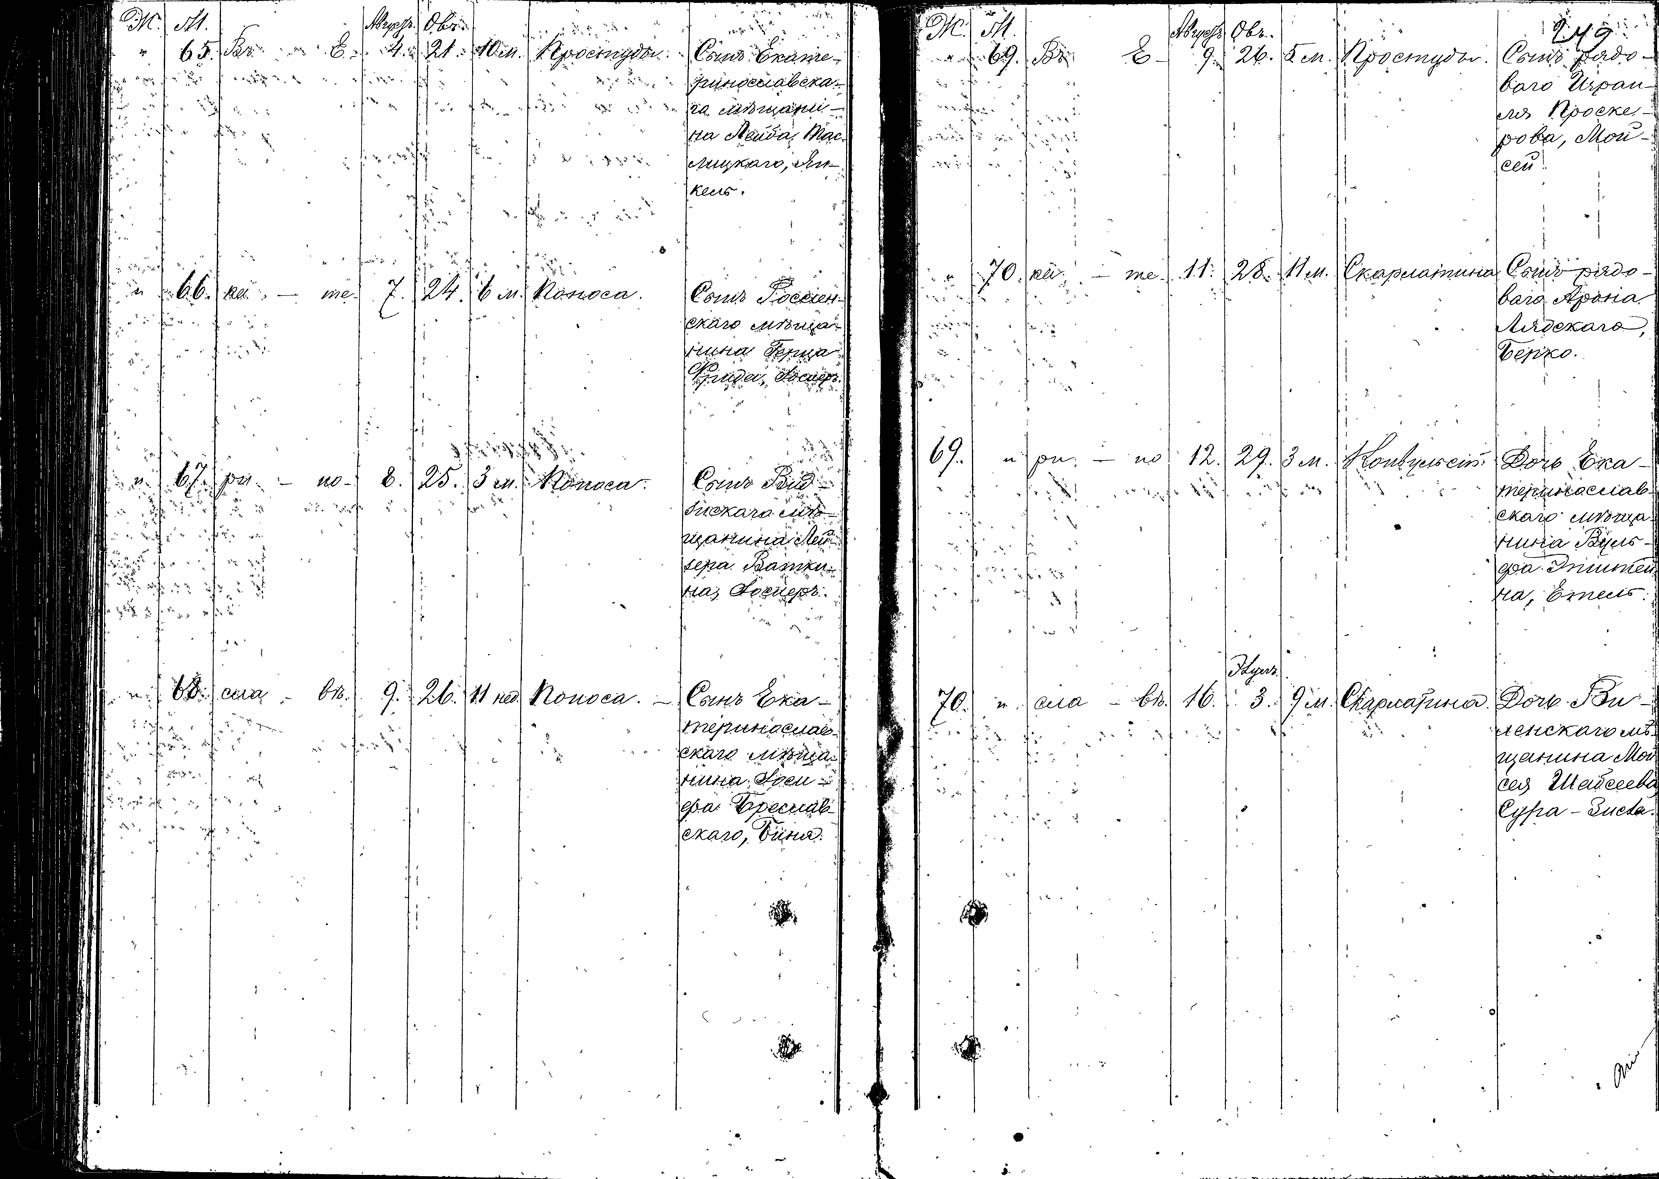 Ж. М. Августъ. Овъ.
" 65. Въ Е- 4. 21. 10 м. Простуды. Сынъ Екате-
ринославска-
го мѣщани-
на Лейба Мас-
лицкаго, Ян-
кель.
" 66. ка - те- 7. 24. 6 м. Поноса. Сынъ Россіен-
скаго мѣща-
нина Герца
Фрида, Іосифъ.
" 67. ри - но- 8. 25. 3 м. Поноса. Сынъ Вид-
зскаго мѣ-
щанина Лей-
зера Ваткин-
на, Іосифъ.
" 68. сла - въ. 9. 26. 11 нед. Поноса. - Сынъ Ека-
теринослав-
скаго мѣща-
нина Іоси-
фа Бреслав-
скаго, Биня.
249
Ж. М. Августъ. Овъ.
" 69. Въ Е- 9. 26. 5 м. Простуды. Сынъ рядо-
ваго Израи-
ля Проске-
рова, Мой-
сей.
" 70. ка - те. 11. 28. 11 м. Скарлатина Сынъ рядо-
ваго Арона
Лядскаго,
Берко.
69. " ри. - но 12. 29. 3 м. Конвульсій. Дочь Ека-
теринослав-
скаго мѣща-
нина Вуль-
фа Эпштей-
на, Етель.
Элулъ.
70. " сла - въ. 16. 3. 9 м. Скарлатина. Дочь Ви-
ленскаго мѣ-
щанина Мой
сея Шайсеева
Сура-Зисла.